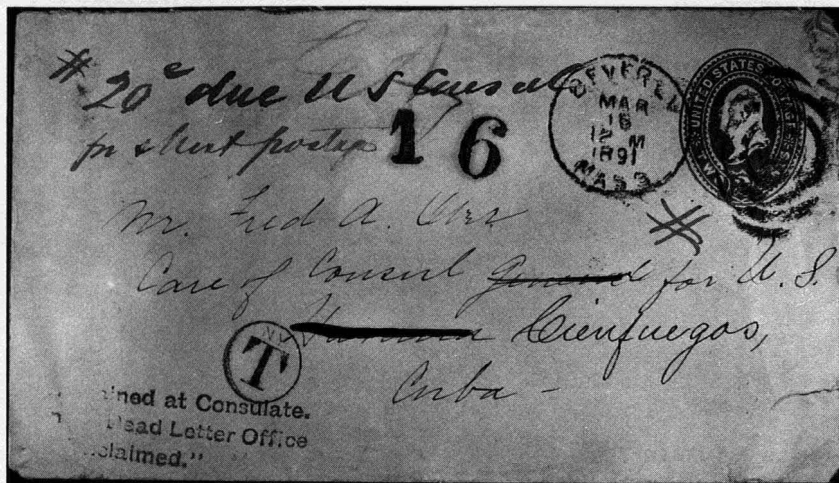 # 20c due US Consul
for short postage
16
BEVERLY
MAR
16
12 M
1891
MASS
UNITED STATES POSTAGE
Mr. Fred A. Ober
Care of Consul General for U.S.
#
Havana Cienfuegos,
Cuba -
T
ined at Consulate.
Dead Letter Office
claimed."